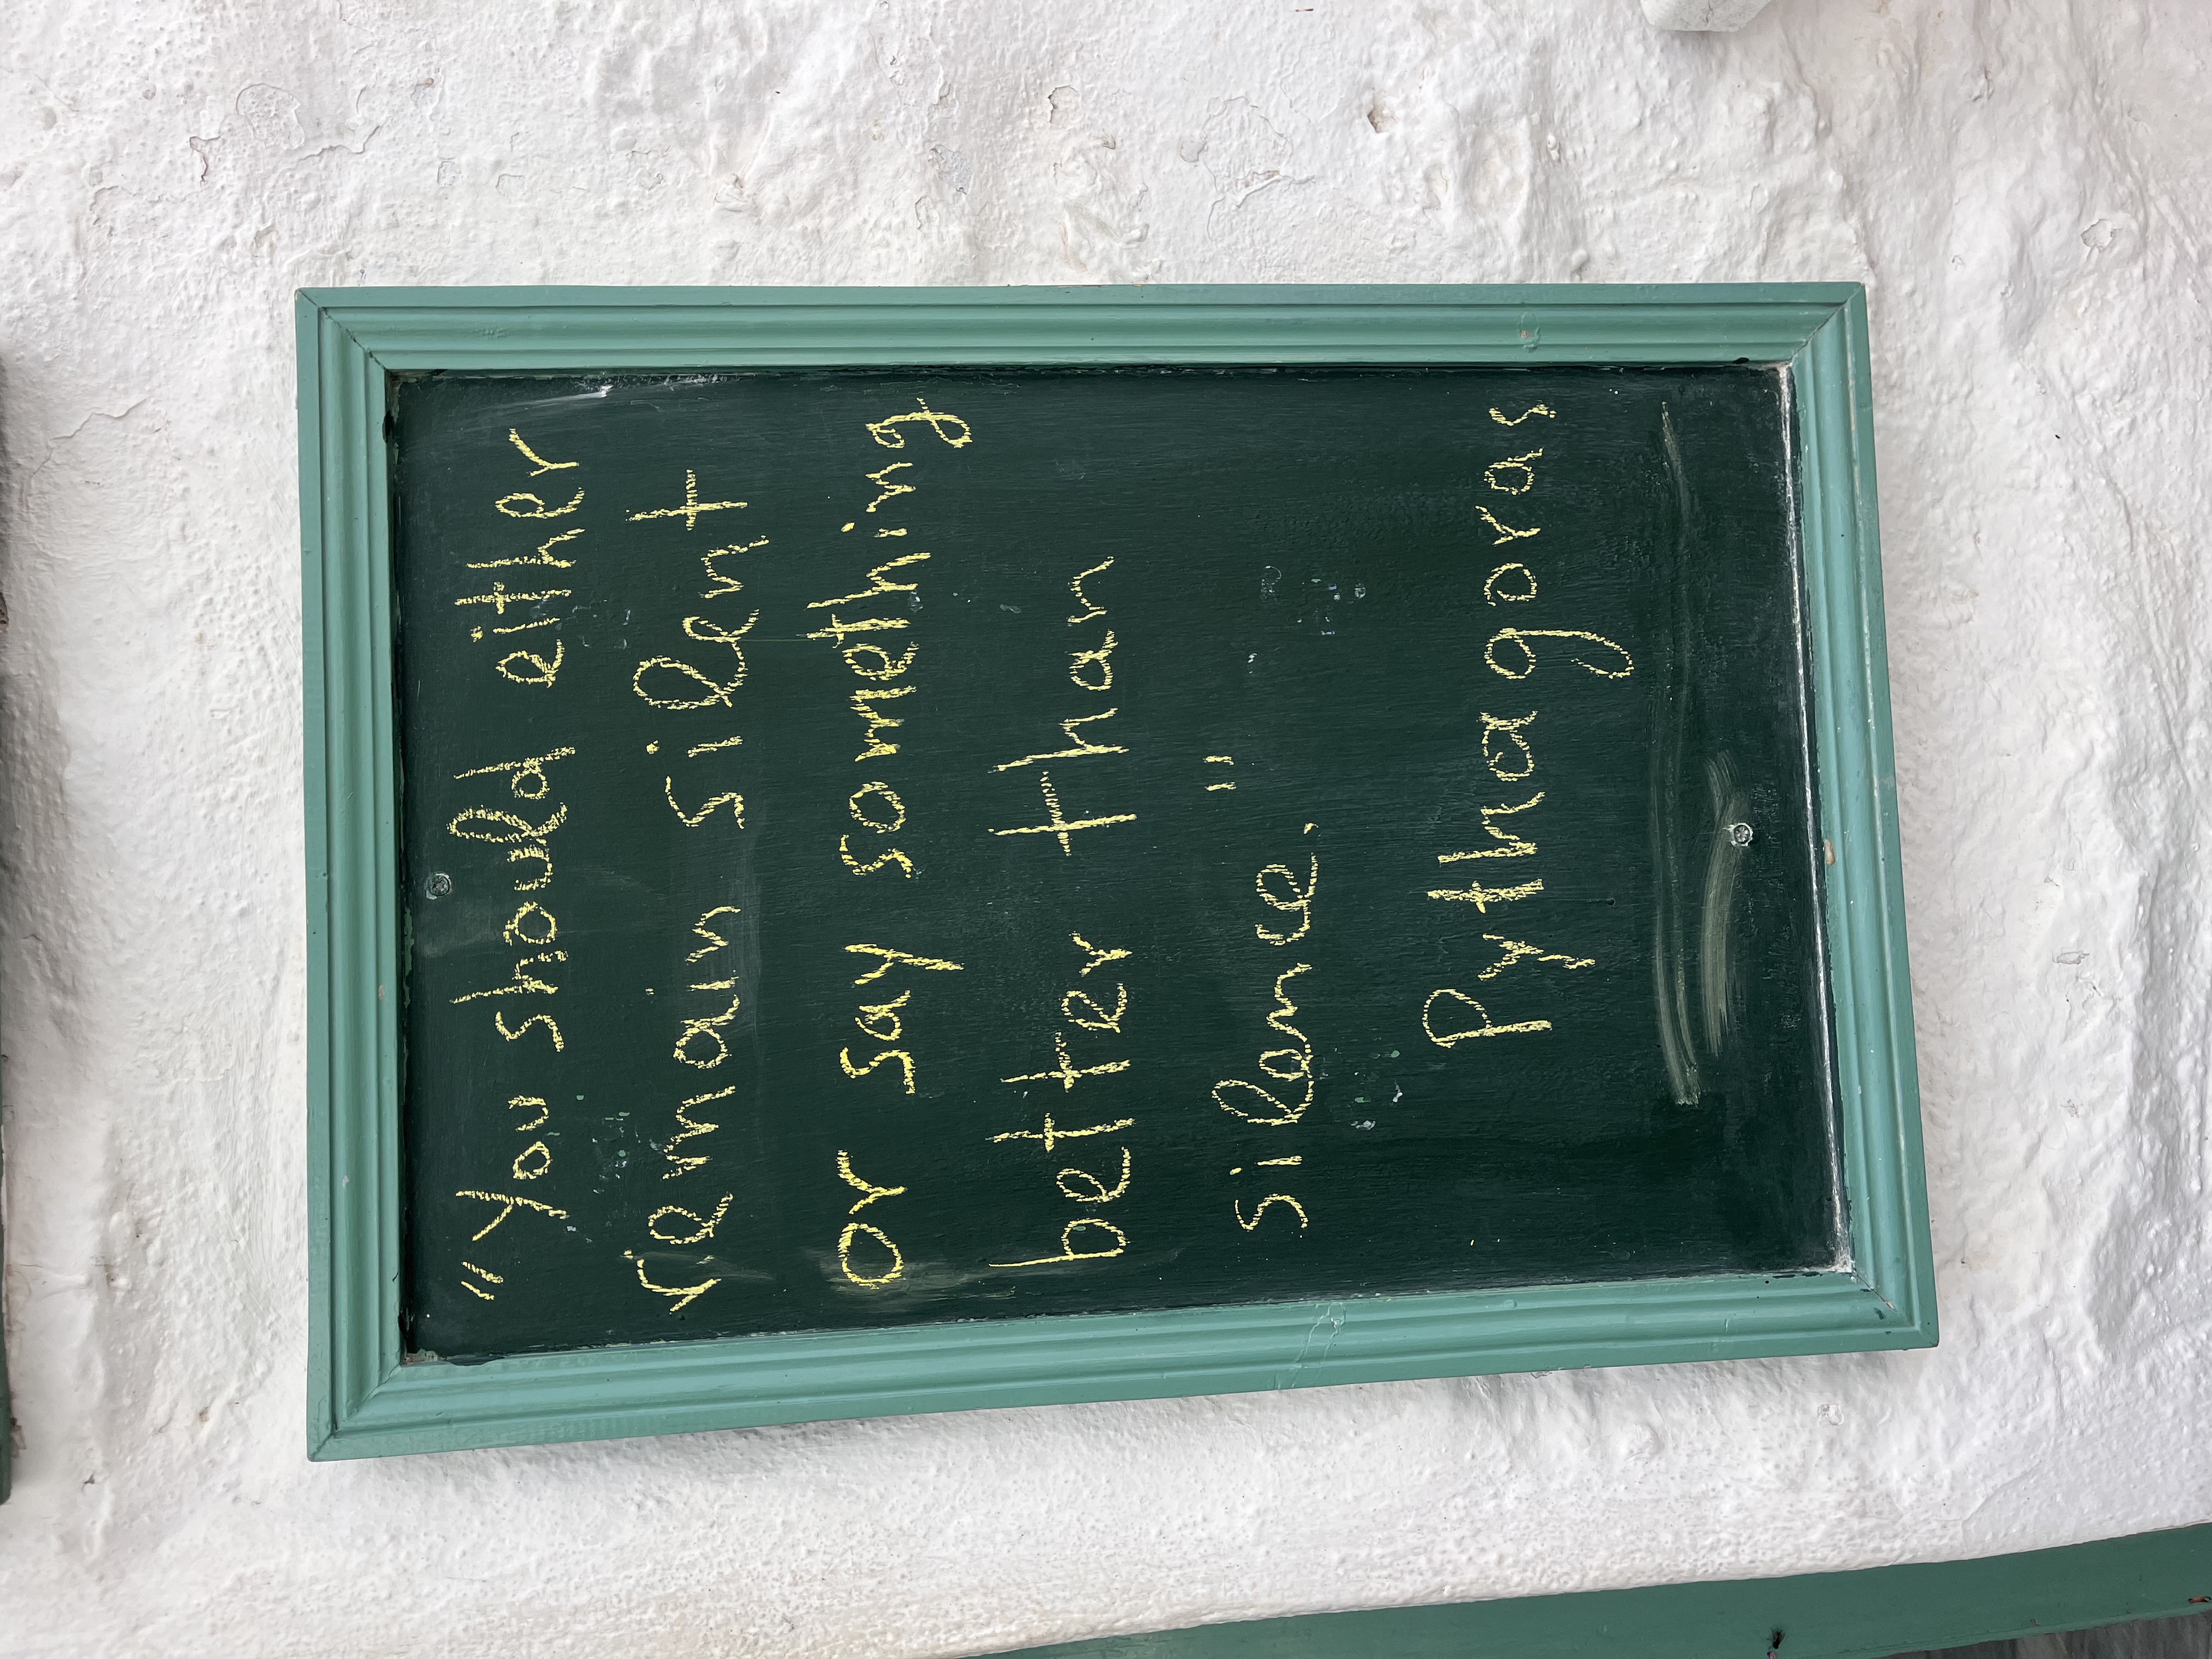 "You should either
remain silent
or say something
better than
silence."
Pythagoras